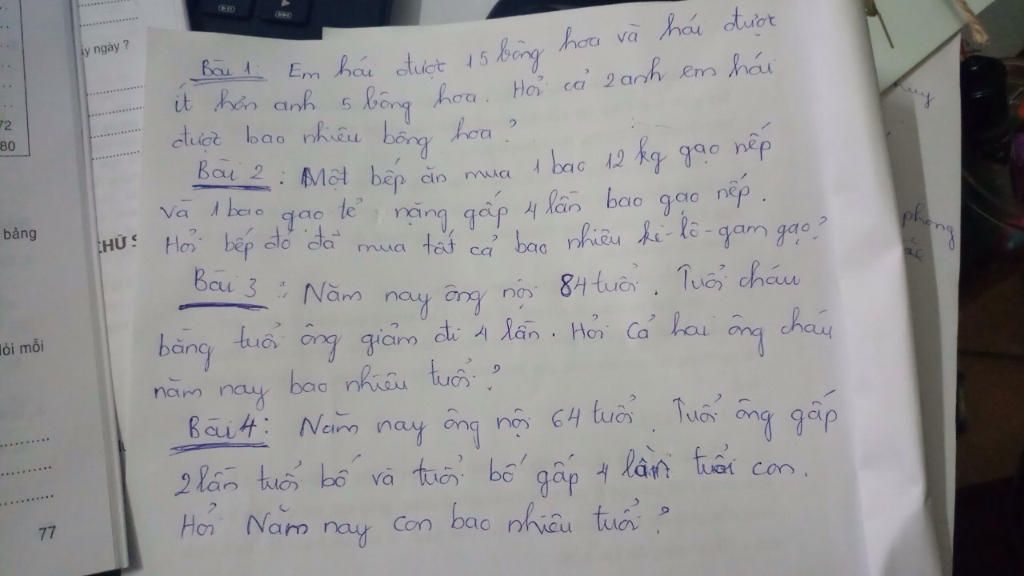 ấy ngày ?
72
80
bảng
CHỮ S
lỏi mỗi
77
Bài 1: Em hái được 15 bông hoa và hái được
ít hơn anh 5 bông hoa. Hỏi cả 2 anh em hái
được bao nhiêu bông hoa?
Bài 2: Một bếp ăn mua 1 bao 12 kg gạo nếp
và 1 bao gạo tẻ nặng gấp 4 lần bao gạo nếp.
Hỏi bếp đó đã mua tất cả bao nhiêu ki-lô-gam gạo?
Bài 3: Năm nay ông nội 84 tuổi. Tuổi cháu
bằng tuổi ông giảm đi 4 lần. Hỏi cả hai ông cháu
năm nay bao nhiêu tuổi?
Bài 4: Năm nay ông nội 64 tuổi. Tuổi ông gấp
2 lần tuổi bố và tuổi bố gấp 4 lần tuổi con.
Hỏi Năm nay con bao nhiêu tuổi?
phòng